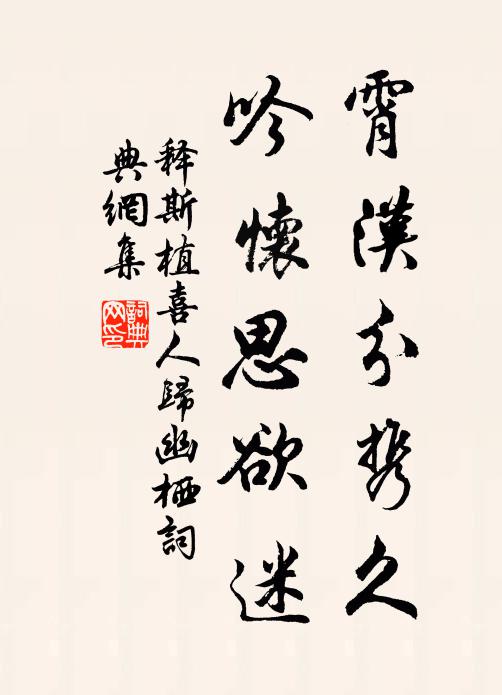 霄漢分携久
吟懷思欲迷
释斯植喜人歸幽栖詞
典網集
詞典
网印